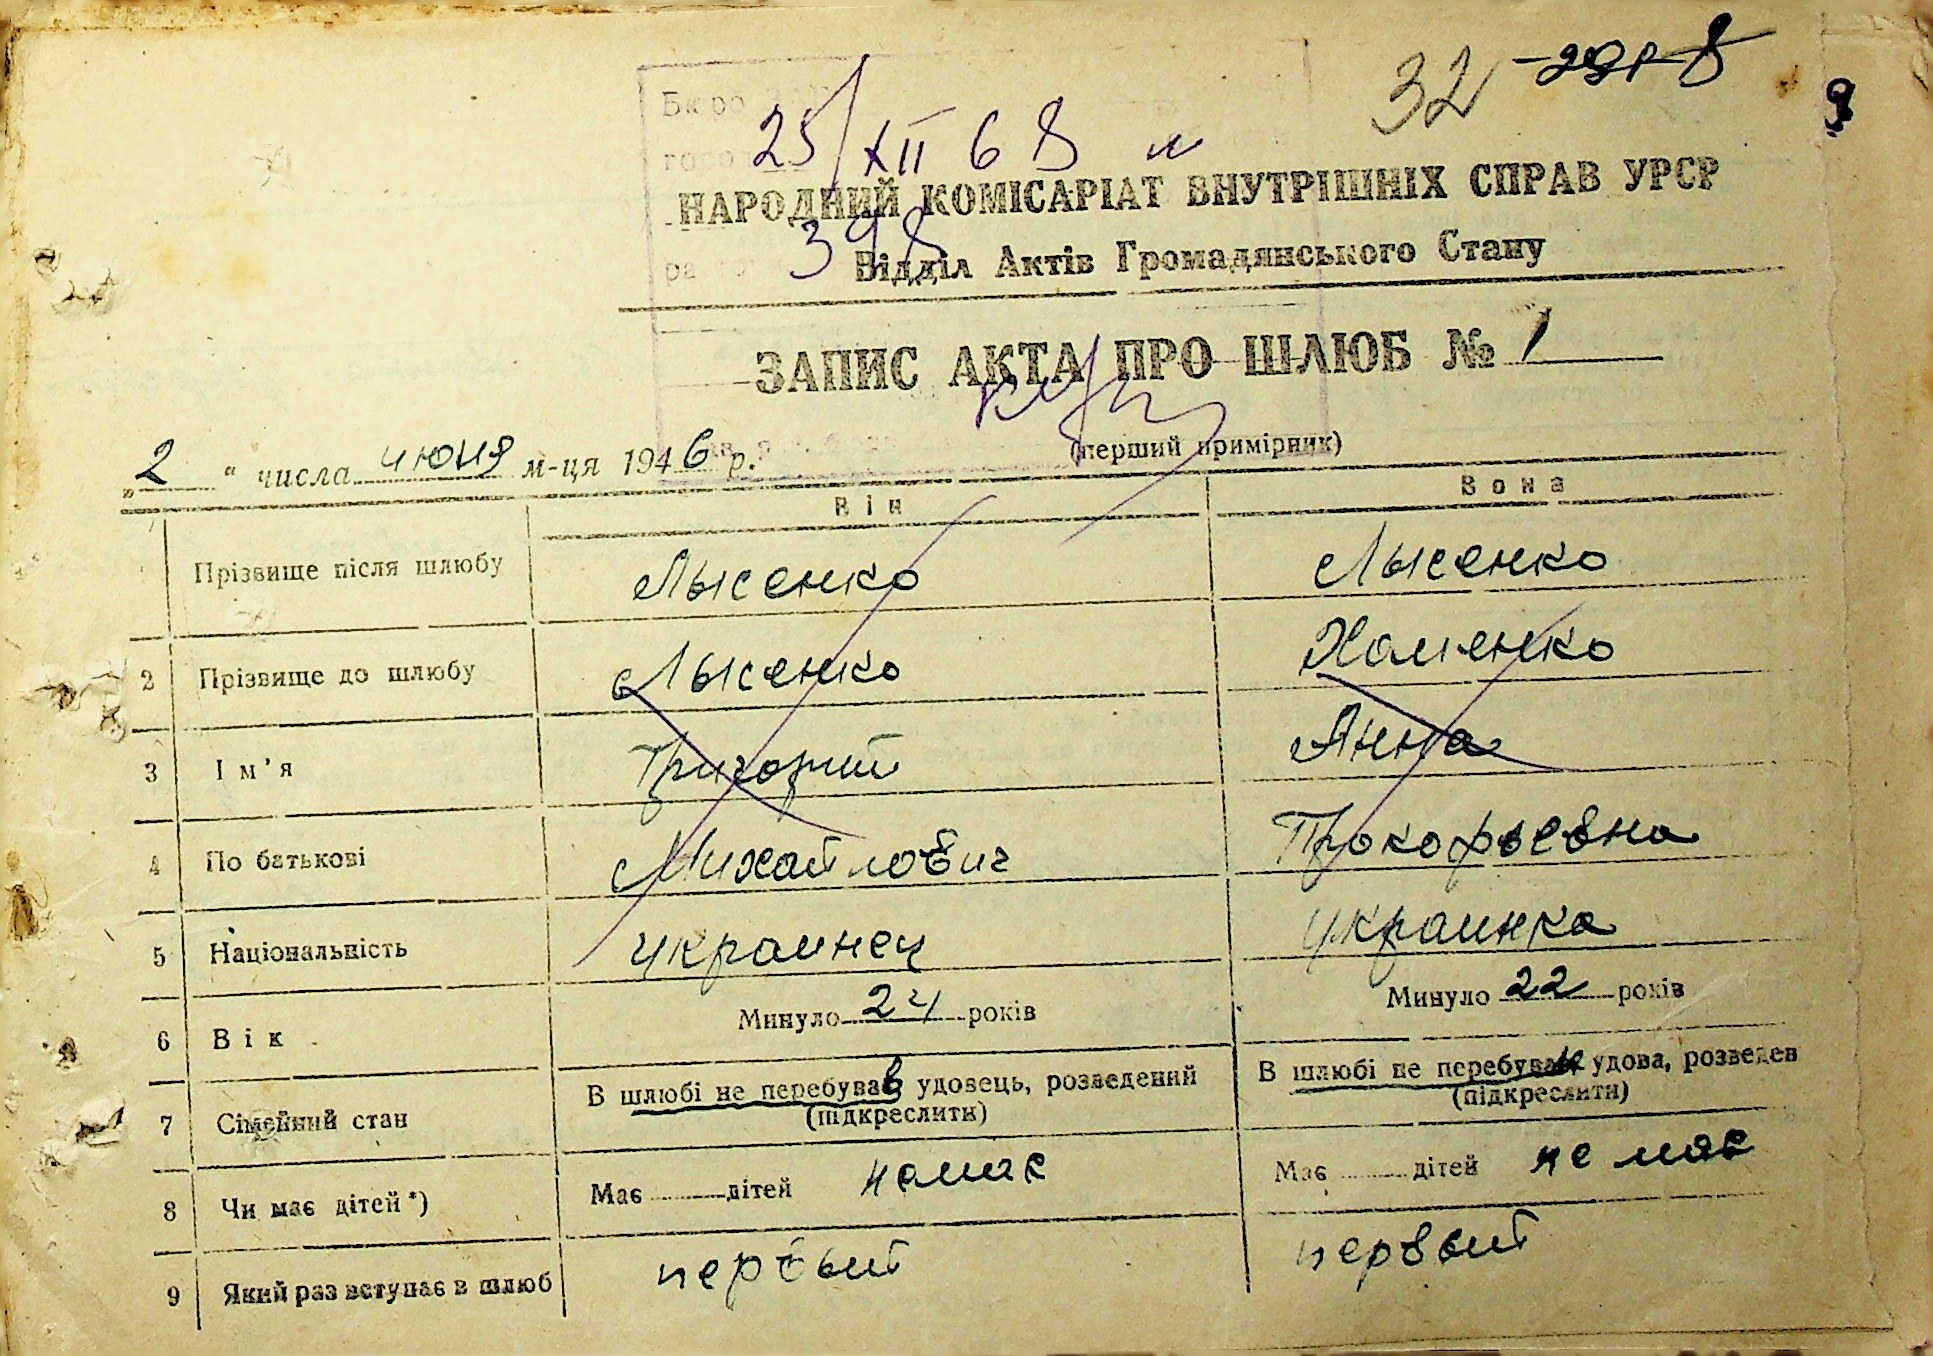 32 8
9
Бюро
25/XII 68
НАРОДНИЙ КОМІСАРІАТ ВНУТРІШНІХ СПРАВ УРСР
398
Відділ Актів Громадянського Стану
ЗАПИС АКТА ПРО ШЛЮБ № 1
(перший примірник)
„2“ числа июня м-ця 1946 р.
Він Вона
Прізвище після шлюбу Лысенко Лысенко
2 Прізвище до шлюбу Лысенко Хоменко
3 Ім'я Григорий Анна
4 По батькові Михайлович Прокофьевна
5 Національність украинец украинка
6 Вік Минуло 24 років Минуло 22 років
7 Сімейний стан В шлюбі не перебував удовець, розведений В шлюбі не перебувала удова, розведен
(підкреслити) (підкреслити)
8 Чи має дітей*) Має дітей немає Має дітей не має
9 Який раз вступає в шлюб первый первый